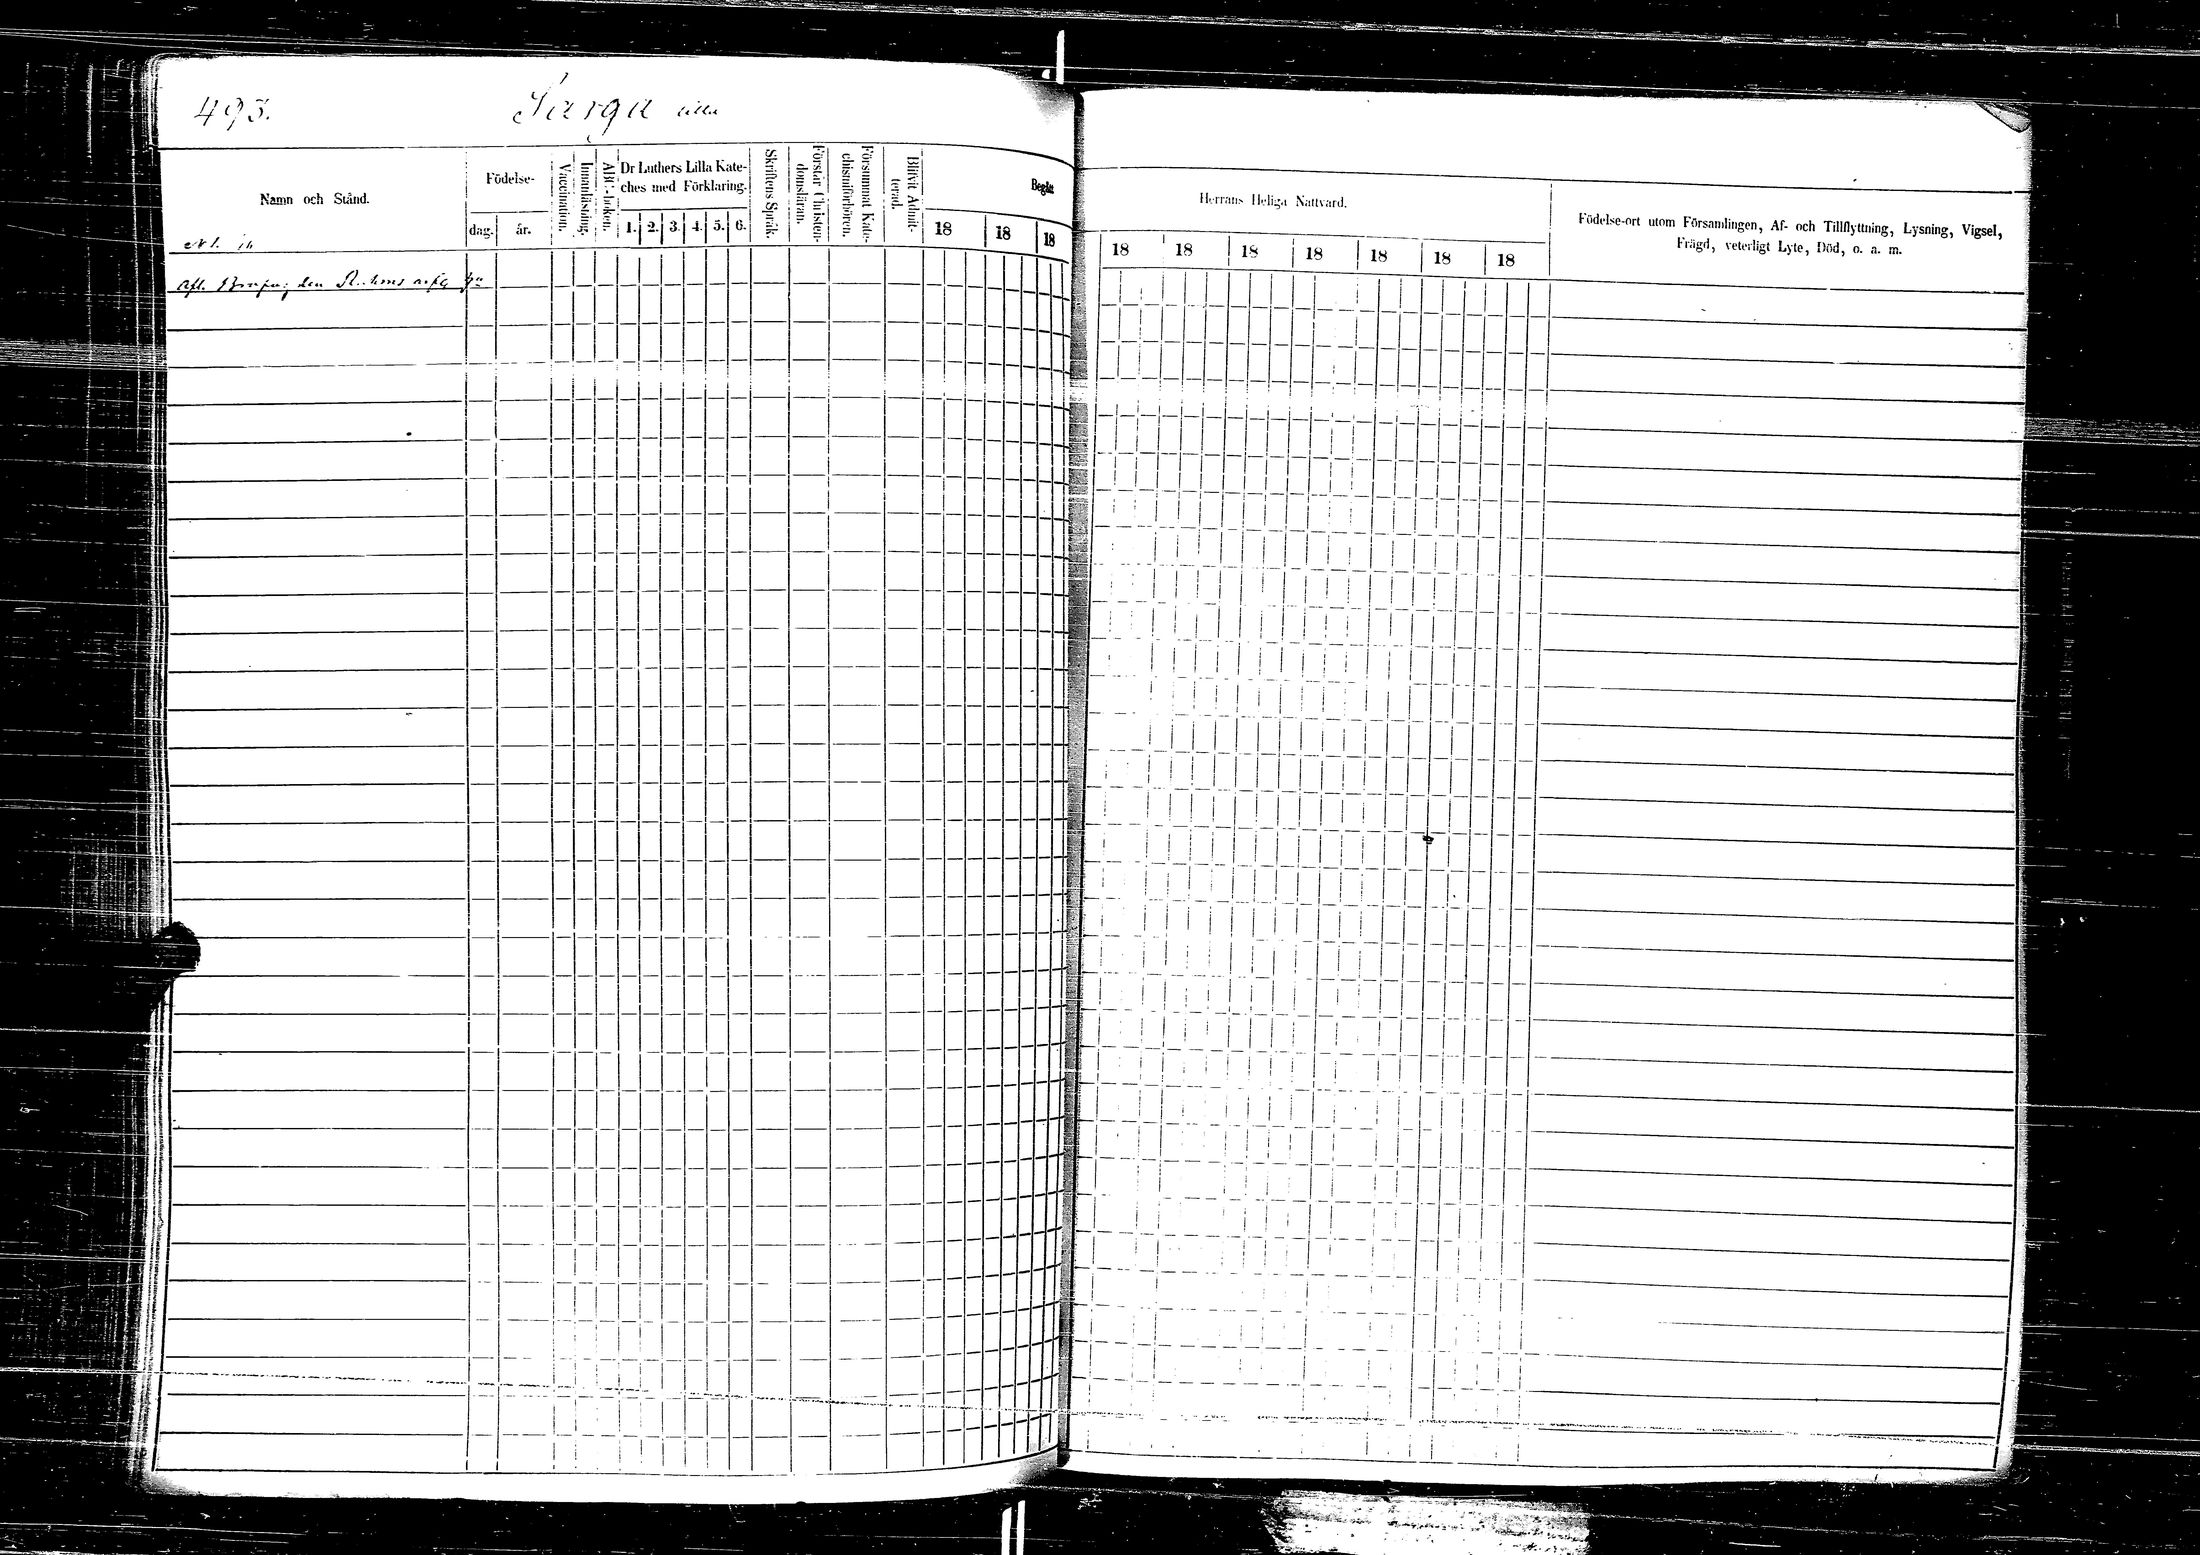 493.
Sarga lilla
Namn och Stånd.
Födelse-
dag.
år.
Vaccination.
Innanläsning.
ABC-boken.
Dr Luthers Lilla Kate-
ches med Förklaring.
1. 2. 3. 4. 5. 6.
Skriftens Språk.
Förstår Christen-
domsläran.
Försummat Kate-
chismiförhören.
Blifvit Admit-
terad.
Begått
18 18 18
Herrans Heliga Nattvard.
18 18 18 18 18 18 18
Födelse-ort utom Församlingen, Af- och Tillflyttning, Lysning, Vigsel,
Frägd, veterligt Lyte, Död, o. a. m.
den